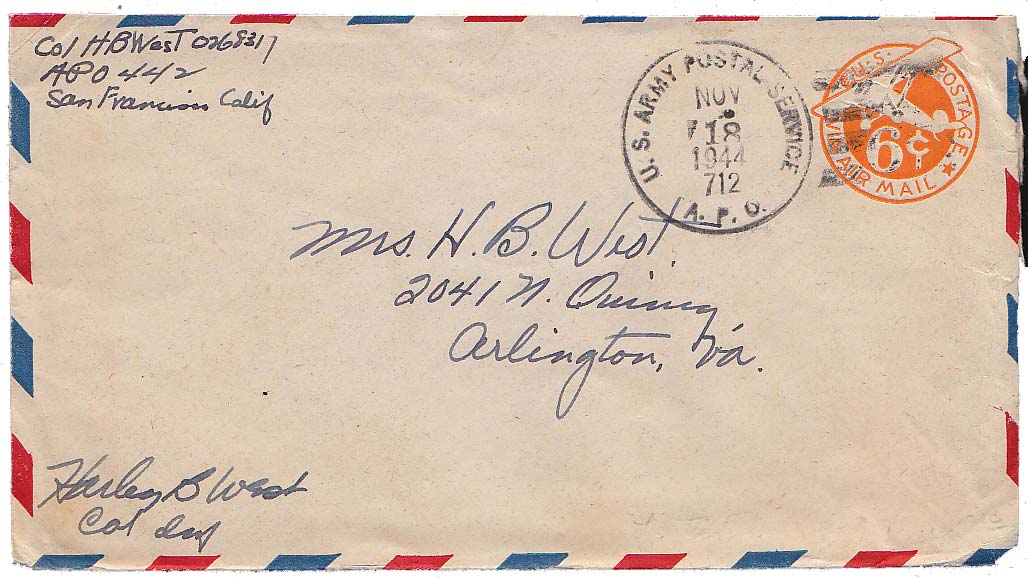 Col HBWest 0268317
APO 442
San Francisco Calif
U. S. ARMY POSTAL SERVICE
NOV
18
1944
712
A. P. O.
U.S. POSTAGE
6¢
VIA AIR MAIL
Mrs. H. B. West
2041 N. Quincy
Arlington, Va.
Harley B West
Col Inf